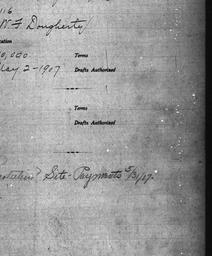 116
W F Dougherty
0,000
Terms
May 2-1907
Drafts Authorized
Terms
Drafts Authorized
Site-Paymnts 5/3/07